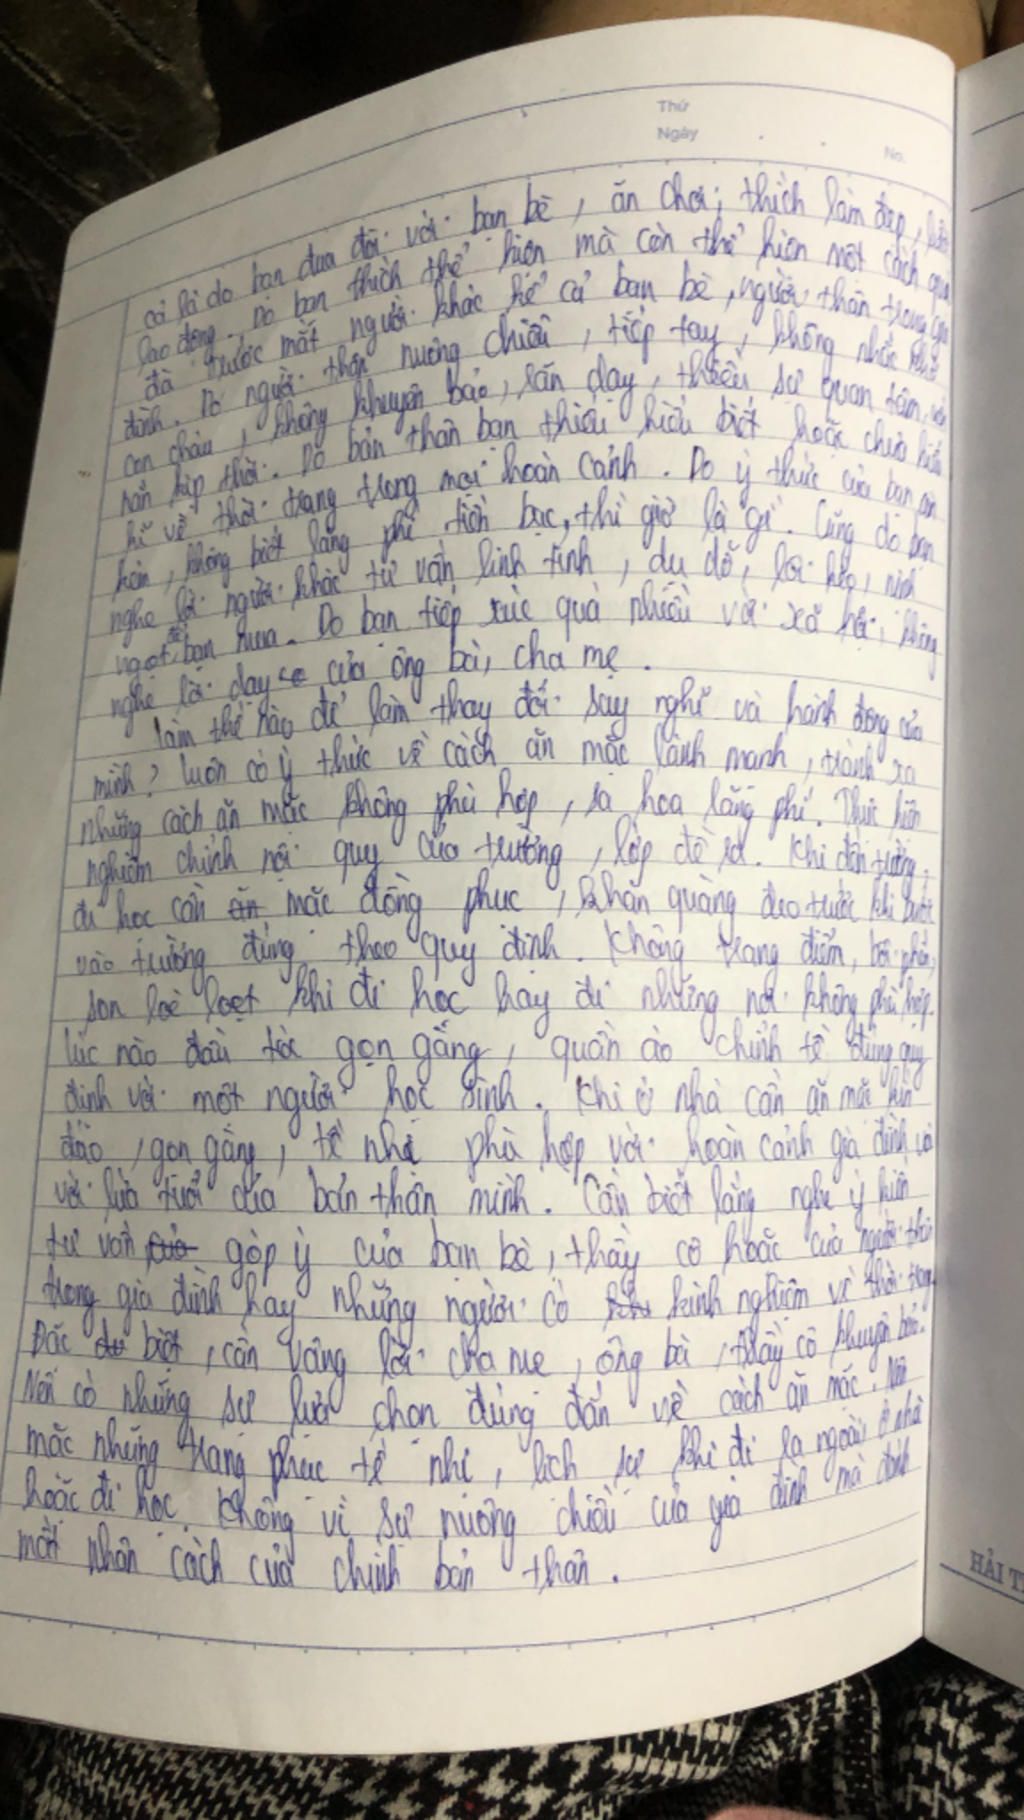 Thứ
Ngày
No.
cả là do bạn đua đòi với bạn bè, ăn chơi, thích làm đẹp, lười
lao động. Do bạn thích thể hiện mà còn thể hiện một cách quá
đà trước mặt người khác kể cả bạn bè, người thân trong gia
đình. Do người thân nuông chiều, tiếp tay, không nhắc nhở
con cháu, không khuyên bảo, răn dạy, thiếu sự quan tâm,
hắn kịp thời. Do bản thân bạn thiếu hiểu biết hoặc chưa hiểu
kĩ về thời trang trong mọi hoàn cảnh. Do ý thức của bạn còn
kém, không biết lãng phí tiền bạc, thì giờ là gì. Cũng do bạn
nghe lời người khác tư vấn linh tinh, dụ dỗ, lôi kéo, nịnh
ngọt để bạn mua. Do bạn tiếp xúc quá nhiều với xã hội, không
nghe lời dạy của ông bà, cha mẹ.
Làm thế nào để làm thay đổi suy nghĩ và hành động của
mình? Luôn có ý thức về cách ăn mặc lành mạnh, tránh xa
những cách ăn mặc không phù hợp, xa hoa lãng phí. Thực hiện
nghiêm chỉnh nội quy của trường, lớp đề ra. Khi đến trường,
đi học cần ăn mặc đồng phục, khăn quàng đeo trước khi bước
vào trường đúng theo quy định. Không trang điểm, bôi phấn,
son loè loẹt khi đi học hay đi những nơi không phù hợp.
Lúc nào đầu tóc gọn gàng, quần áo chỉnh tề đúng quy
định với một người học sinh. Khi ở nhà cần ăn mặc kín
đáo, gọn gàng, tế nhị phù hợp với hoàn cảnh gia đình và
với lứa tuổi của bản thân mình. Cần biết lắng nghe ý kiến
tư vấn của góp ý của bạn bè, thầy cô hoặc của người thân
trong gia đình hay những người có kinh nghiệm về thời trang.
Đặc biệt, cần vâng lời cha mẹ, ông bà, thầy cô khuyên bảo.
Nên có những sự lựa chọn đúng đắn về cách ăn mặc. Nên
mặc những trang phục tế nhị, lịch sự khi đi ra ngoài, ở nhà
hoặc đi học. Không vì sự nuông chiều của gia đình mà đánh
mất nhân cách của chính bản thân.